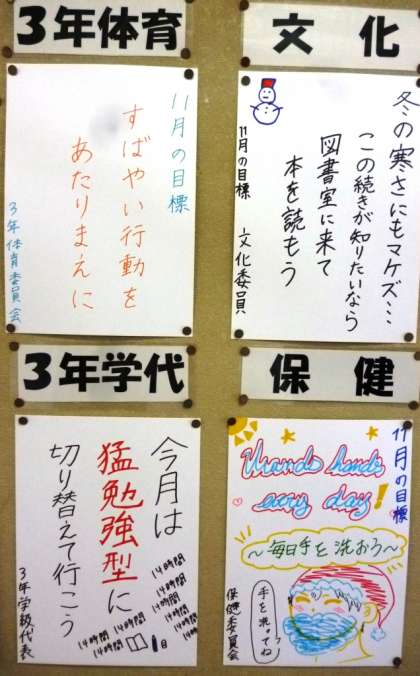 3年体育
11月の目標
すばやい行動を
あたりまえに
3年体育委員会
文化
冬の寒さにもマケズ…
この続きが知りたいなら
図書室に来て
本を読もう
11月の目標 文化委員
3年学代
今月は
猛勉強型に
切り替えて行こう
14時間
14時間
14時間
14時間
14時間
14時間
14時間
14時間
14時間
3年学級代表
保健
11月の目標
hands
every day!
～毎日手を洗おう～
手を洗ってね
保健委員会